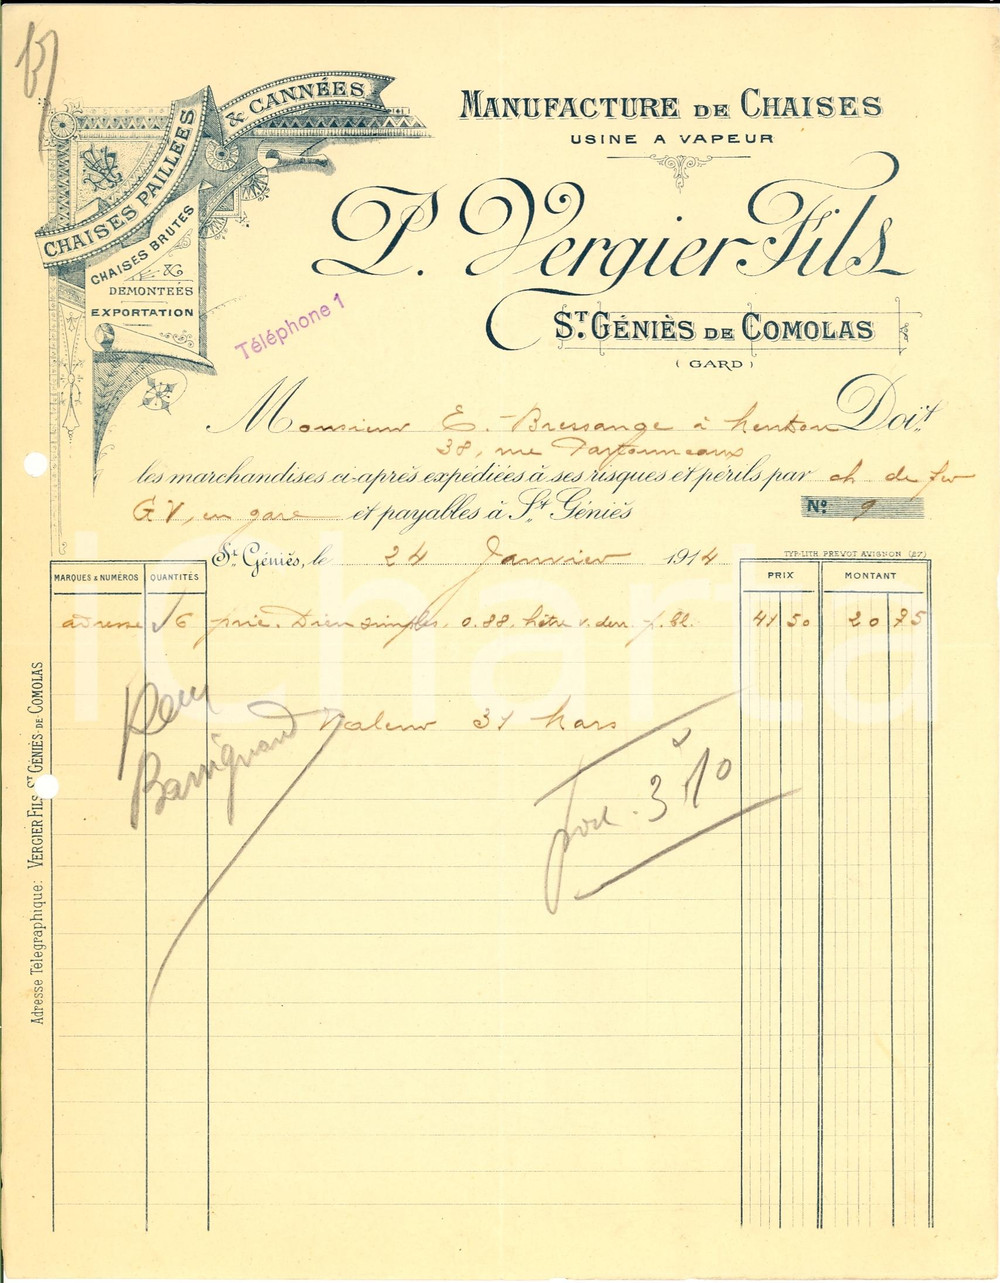 CHAISES PAILLÉES
& CANNÉES
CHAISES BRUTES
&
DEMONTEÉS
EXPORTATION
MANUFACTURE DE CHAISES
USINE A VAPEUR
P. Vergier Fils
ST. GÉNIÈS DE COMOLAS
( GARD )
Téléphone 1
Monsieur E. Bressange à Menton Doit
38, rue Partouneaux
les marchandises ci-après expédiées à ses risques et périls par ch de fer
GV, en gare et payables à St. Géniès
No. 9
St. Géniès, le 24 Janvier 1914
TYP-LITH. PREVOT AVIGNON (27)
MARQUES & NUMÉROS QUANTITÉS PRIX MONTANT
adresse 6 simples, 0.88. hêtre 41 50 20 75
Valeur 31 Mars
3 10
Adresse Télégraphique: VERGIER FILS ST GÉNIÈS-DE-COMOLAS
iCharta